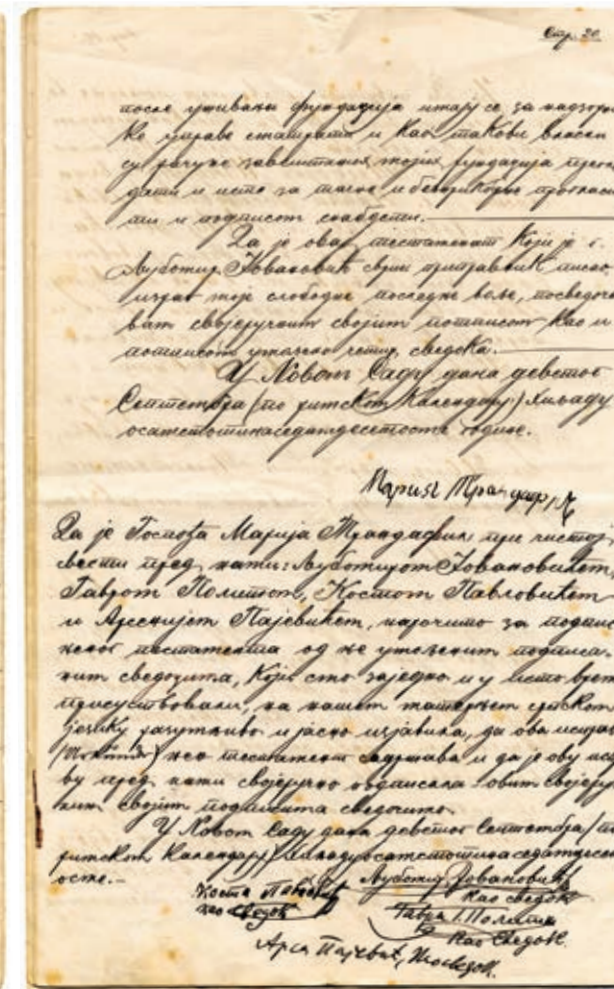 Стр. 20.
после уживања фундација имају се за надзор
ко управе сматрати и као такови власни
су рачуне завештаних мојих фундација прегле
дати и исто за тачно и беспрекорно прогласи
ти и подписом снабдети.
Да је овај тестаменат који је г.
Љуботир Јовановић сврш. приправник писао,
израз моје слободне последње воље, посведоча
вам својеручним својим потписом као и
потписом умољена четир. сведока.
У Новом Саду дана деветог
Септембра (по римском Календару) хиљаду
осамстотинаседамдесетосме године.
Марија Трандафил
Да је Госпођа Марија Трандафил при чистој
свести пред нама: Љубомиром Јовановићем,
Гавром Политом, Костом Павловићем
и Арсенијем Пајевићем, нарочито за подпис
њеног тестамента од ње умољеним подписа-
ним сведоцима, који смо заједно и у исто време
присуствовали, на нашем матерњем српском
језику разумљиво и јасно изјавила, да ова исправ
њен тестаменат садржава и да је ову испра
ву пред нама својеручно подписала овим својеруч
ним својим подписима сведочимо.
У Новом Саду дана деветог Септембра (по
римском Календару) хиљадуосамстотинаседамдесет
осме.-
Љубомир Јовановић
као сведок
Коста Павловић
као сведок
Гавра Полит
као Сведок.
Арса Пајевић, као сведок.